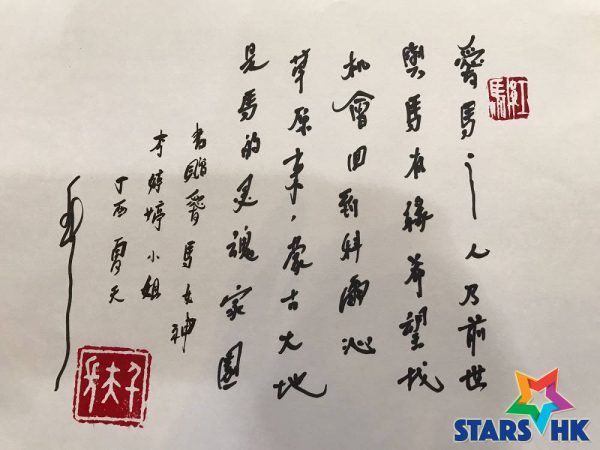 愛馬之人乃前世
與馬有緣希望找
机會回到科爾沁
草原來,蒙古大地
是馬的灵魂家園
書贈愛馬女神
婷小姐
丁酉夏天
STARS HK